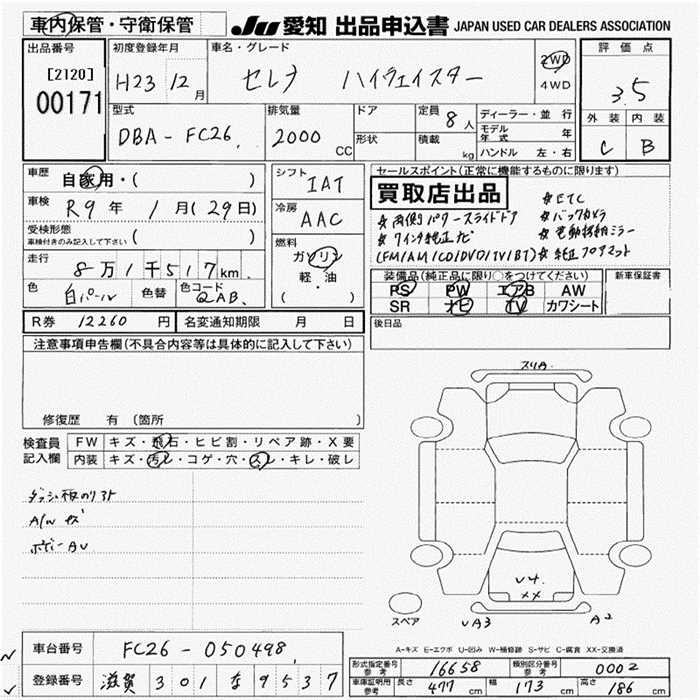 車内保管・守衛保管
JU 愛知 出品申込書 JAPAN USED CAR DEALERS ASSOCIATION
出品番号
[2120]
00171
初度登録年月
H23 12 月
車名・グレード
セレナ ハイウェイスター
2WD
4WD
評価点
3.5
外装 内装
C B
型式
DBA-FC26
排気量
2000 CC
ドア
形状
定員 8 人
積載 kg
ディーラー・並行
モデル年式 年
ハンドル 左・右
車歴
自家用・( )
車検
R9 年 1 月(29日)
受検形態
車検付きのみ記入して下さい ( )
走行
8万1千517km
色
白パール
色替
色コード
QAB
シフト
IAT
冷房
AAC
燃料
ガソリン
軽・油
( ・ )
セールスポイント(正常に機能するものに限ります)
買取店出品
★ETC
★両側パワースライドドア ★バックカメラ
★7インチ純正ナビ ★電動格納ミラー
(FM/AM/CD/DVD/TV/BT) ★純正フロアマット
装備品(純正品に限り○をつけてください)
PS PW エアB AW
SR ナビ TV カワシート
新車保証書
後日品
R券 12260 円
名変通知期限 月 日
注意事項申告欄(不具合内容等は具体的に記入して下さい)
修復歴 有 (箇所 )
検査員記入欄
FW キズ・飛石・ヒビ割・リペア跡・X要
内装 キズ・汚レ・コゲ・穴・スレ・キレ・破レ
ダッシュ板のりあと
A/W キズ
ボディー AU
スリA
U4
XX
UA3
A2
スペア
A=キズ E=エクボ U=凹み W=補修跡 S=サビ C=腐食 XX=交換済
車台番号 FC26-050498
登録番号 滋賀 301 な 9537
型式指定番号 参考 16658
類別区分番号 参考 0002
車庫証明用 参考 長さ 477 cm 幅 173 cm 高さ 186 cm